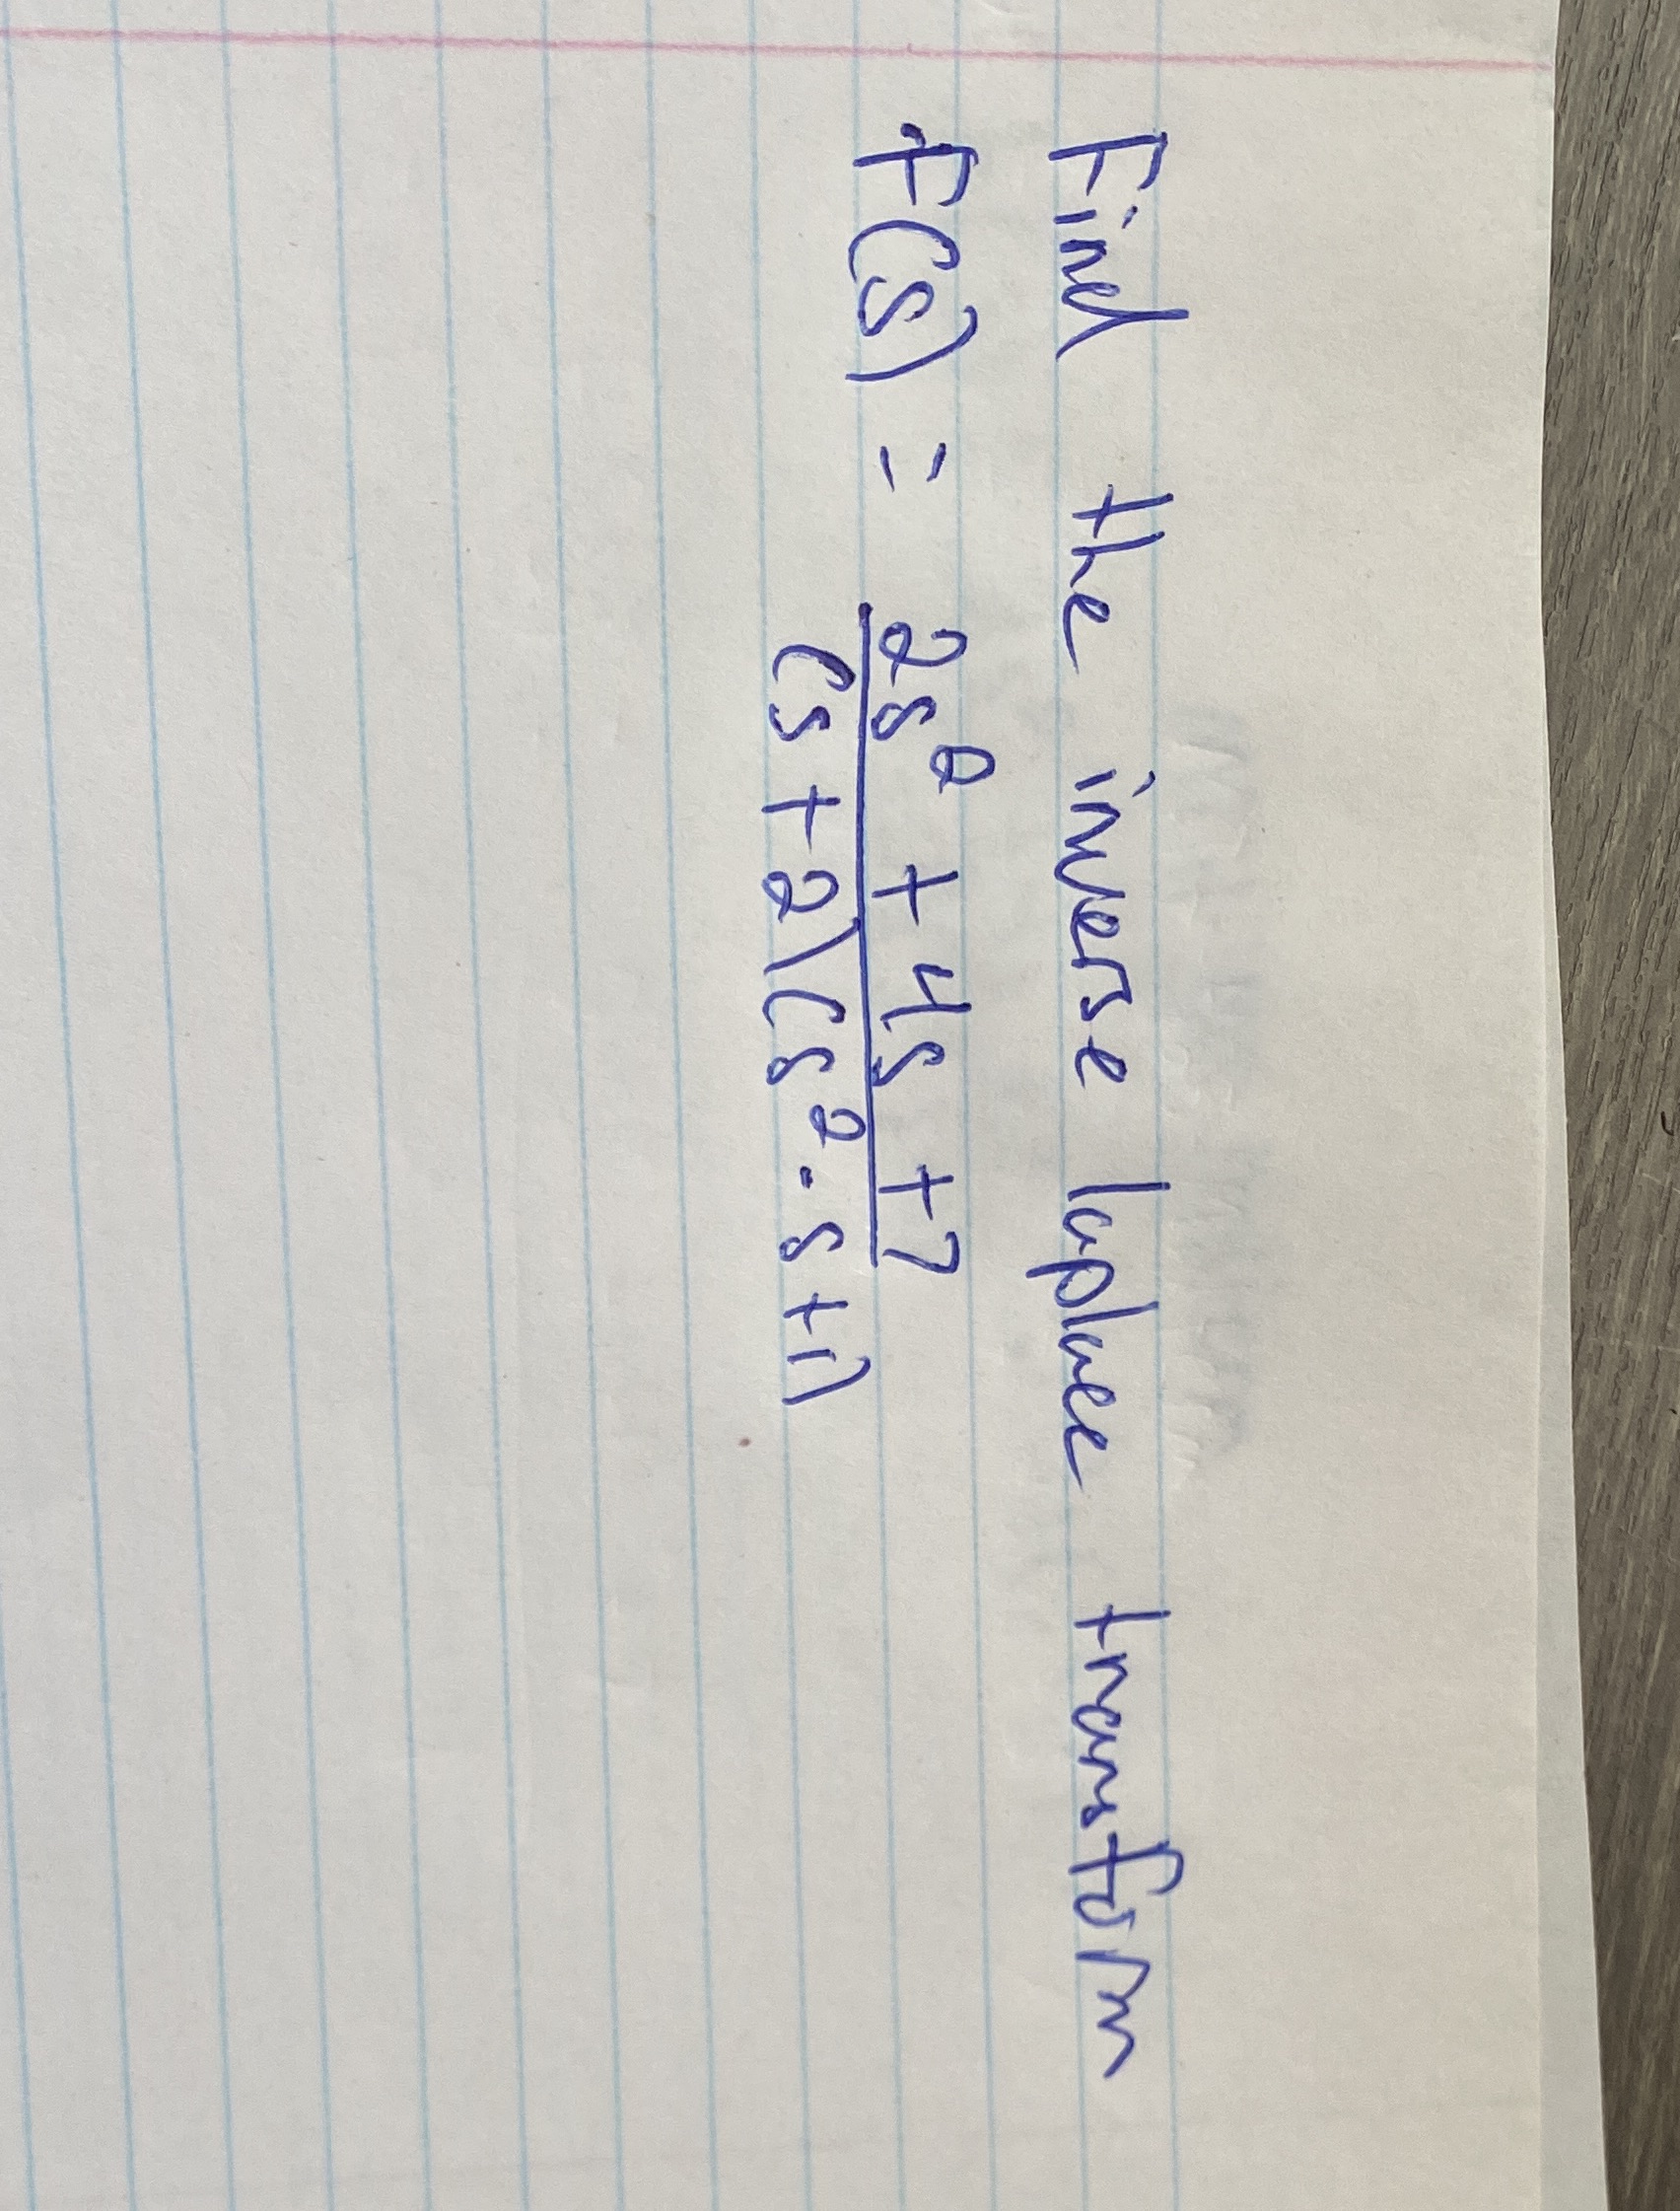 Find the inverse laplace transform
F(s) = 2s² + 4s + 7
(s + 2)(s² · s + 1)